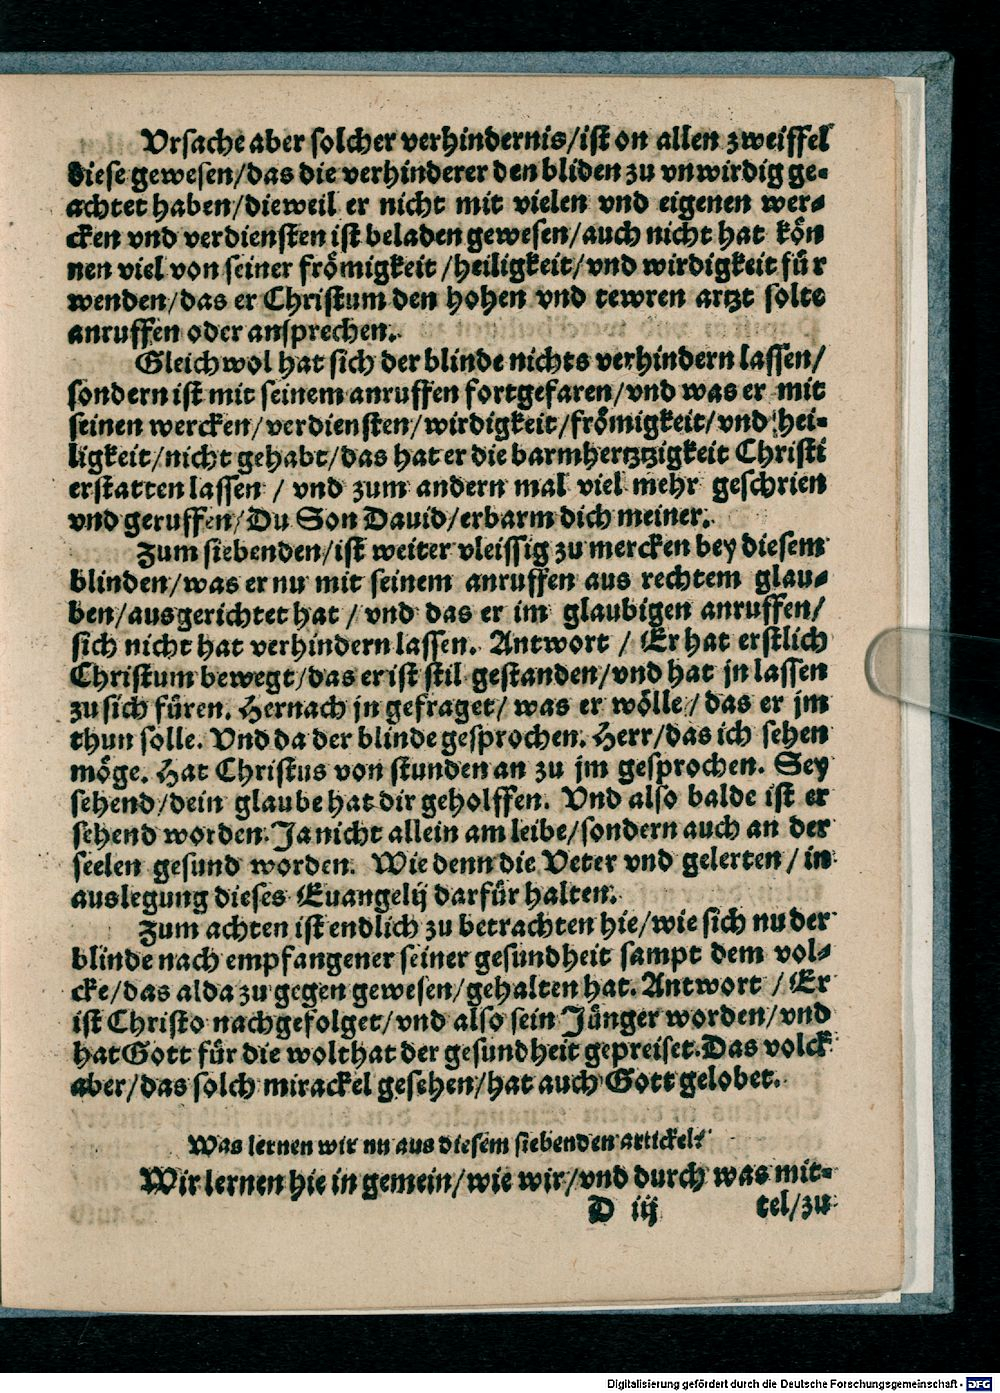 Vrsache aber solcher verhindernis/ist on allen zweiffel
diese gewesen/das die verhinderer den bliden zu vnwirdig ge-
achtet haben/dieweil er nicht mit vielen vnd eigenen wer-
cken vnd verdiensten ist beladen gewesen/auch nicht hat kön
nen viel von seiner frömigkeit/heiligkeit/vnd wirdigkeit für
wenden/das er Christum den hohen vnd tewren artzt solte
anruffen oder ansprechen.
Gleichwol hat sich der blinde nichts verhindern lassen/
sondern ist mit seinem anruffen fortgefaren/vnd was er mit
seinen wercken/verdiensten/wirdigkeit/frömigkeit/vnd hei-
ligkeit/nicht gehabt/das hat er die barmhertztzigkeit Christi
erstatten lassen / vnd zum andern mal viel mehr geschrien
vnd geruffen/Du Son Dauid/erbarm dich meiner.
Zum siebenden/ist weiter vleissig zu mercken bey diesem
blinden/was er nu mit seinem anruffen aus rechtem glau-
ben/ausgerichtet hat / vnd das er im glaubigen anruffen/
sich nicht hat verhindern lassen. Antwort / Er hat erstlich
Christum bewegt/das er ist stil gestanden/vnd hat jn lassen
zu sich füren. Hernach jn gefraget/ was er wölle/ das er jm
thun solle. Vnd da der blinde gesprochen. Herr/das ich sehen
möge. Hat Christus von stunden an zu jm gesprochen. Sey
sehend/dein glaube hat dir geholffen. Vnd also balde ist er
sehend worden. Ja nicht allein am leibe/sondern auch an der
seelen gesund worden. Wie denn die Veter vnd gelerten / in
auslegung dieses Euangelij darfür halten.
Zum achten ist endlich zu betrachten hie/wie sich nu der
blinde nach empfangener seiner gesundheit sampt dem vol-
cke/das alda zu gegen gewesen/gehalten hat. Antwort / Er
ist Christo nachgefolget/vnd also sein Jünger worden/vnd
hat Gott für die wolthat der gesundheit gepreiset. Das volck
aber/das solch mirackel gesehen/hat auch Gott gelobet.
Was lernen wir nu aus diesem siebenden artickel?
Wir lernen hie in gemein/wie wir/vnd durch was mit-
D iij tel/zu
Digitalisierung gefördert durch die Deutsche Forschungsgemeinschaft - DFG